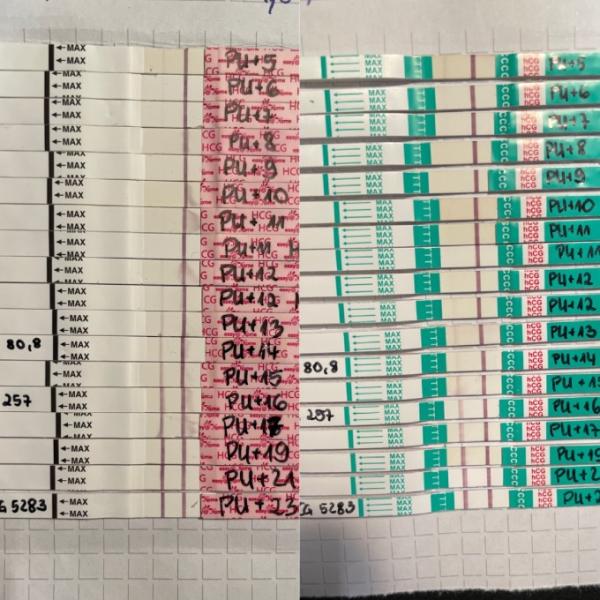 ←MAX PU+5
←MAX
←MAX PU+6
←MAX
←MAX PU+7
←MAX
←MAX PU+8
←MAX
←MAX PU+9
←MAX PU+10
←MAX PU+11
←MAX PU+11
←MAX PU+12
←MAX PU+12
←MAX PU+13
80,8 ←MAX PU+14
←MAX PU+15
257 ←MAX PU+16
←MAX PU+17
←MAX PU+19
←MAX PU+21
G 5283 ←MAX PU+23
MAX hCG PU+5
MAX hCG PU+6
MAX hCG PU+7
MAX hCG PU+8
MAX hCG PU+9
MAX hCG PU+10
MAX hCG PU+11
MAX hCG PU+11
MAX hCG PU+12
MAX hCG PU+12
MAX hCG PU+13
80,8 MAX hCG PU+14
MAX hCG PU+15
257 MAX hCG PU+16
MAX hCG PU+17
MAX hCG PU+19
MAX hCG PU+2
G 5283 MAX hCG PU+2